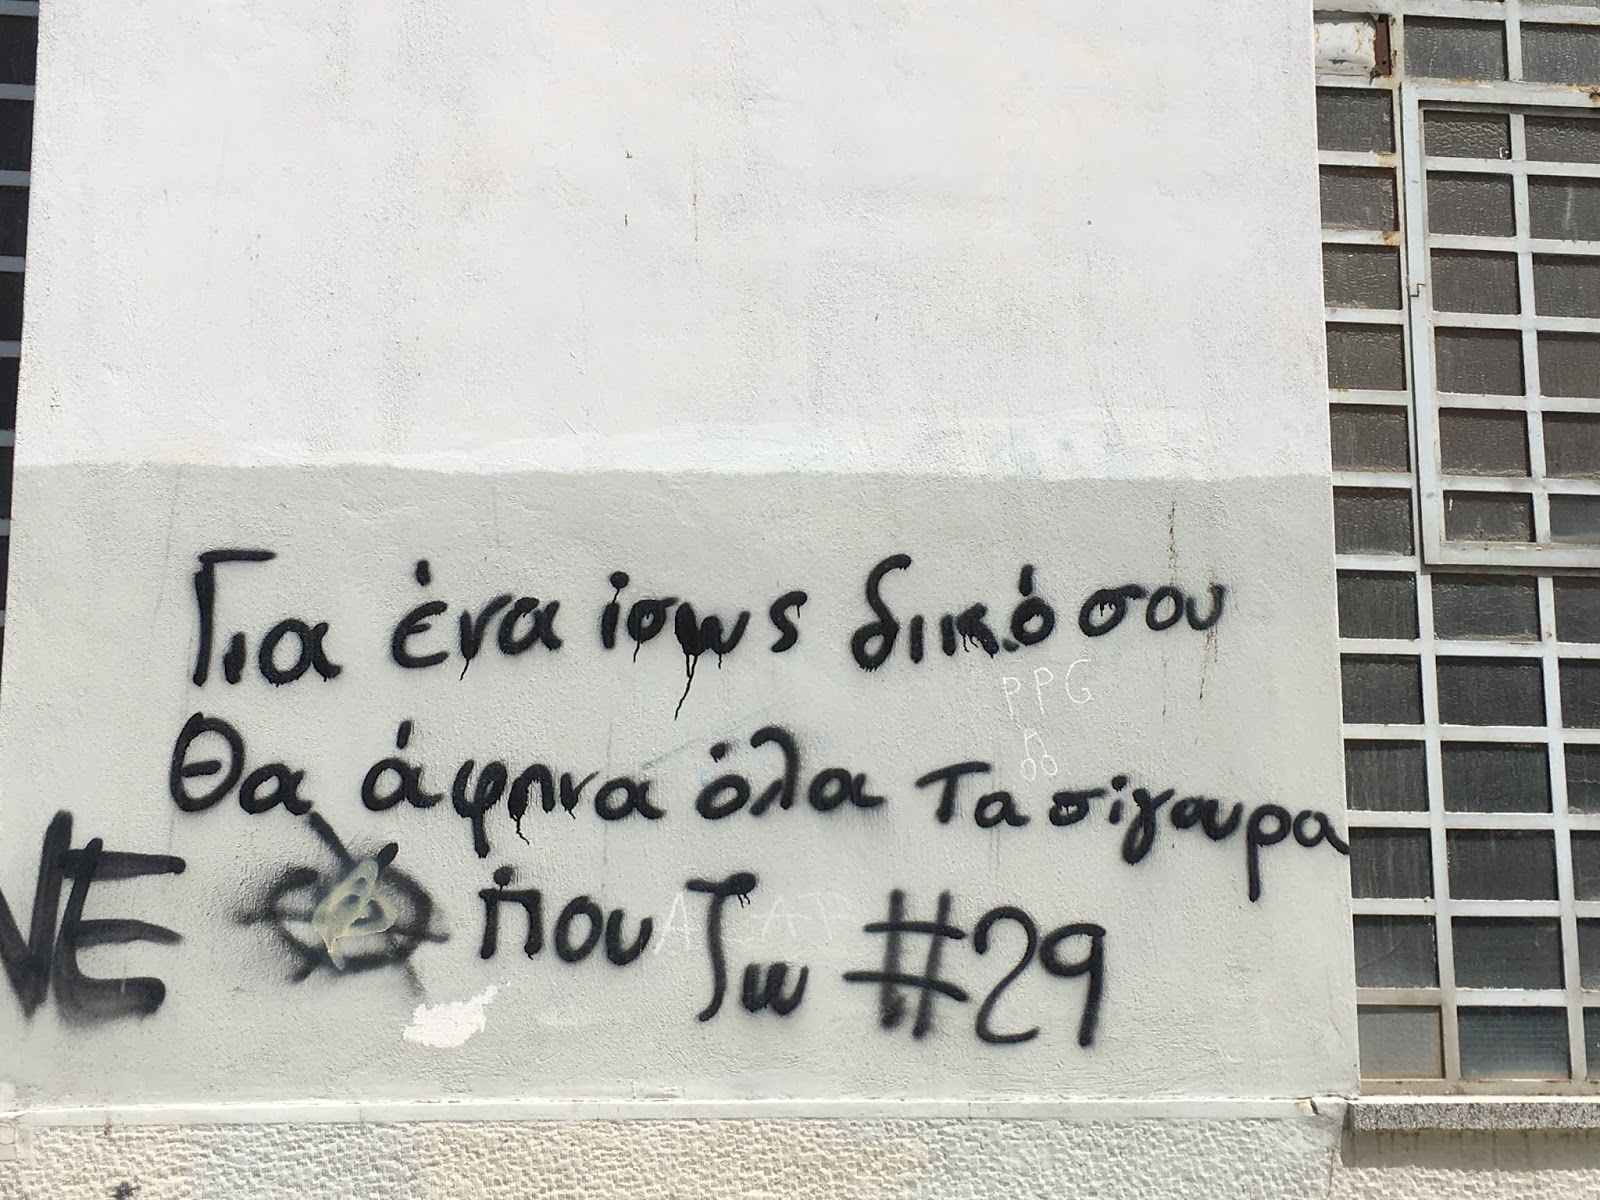 Για ένα ίσως δικό σου
PPG
Θα άφηνα όλα τα σίγουρα
NE
που ζω #29